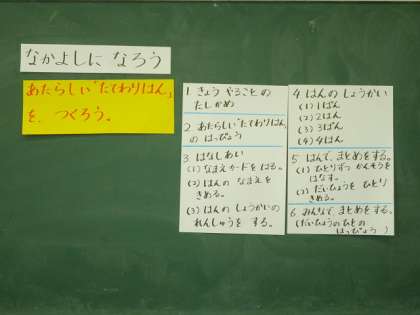 なかよしに なろう
あたらしい「たてわりはん」
を、つくろう。
1 きょう やることの
たしかめ
2 あたらしい「たてわりはん」
の はっぴょう
3 はなしあい
(1) なまえカードを はる。
(2) はんの なまえを
きめる。
(3) はんの しょうかいの
れんしゅうを する。
4 はんの しょうかい
(1) 1ぱん
(2) 2はん
(3) 3ぱん
(4) 4はん
5 はんで、まとめをする。
(1) ひとりずつ かんそうを
はなす。
(2) だいひょうを ひとり
きめる。
6 みんなで、まとめをする。
(だいひょうのひとの
はっぴょう)